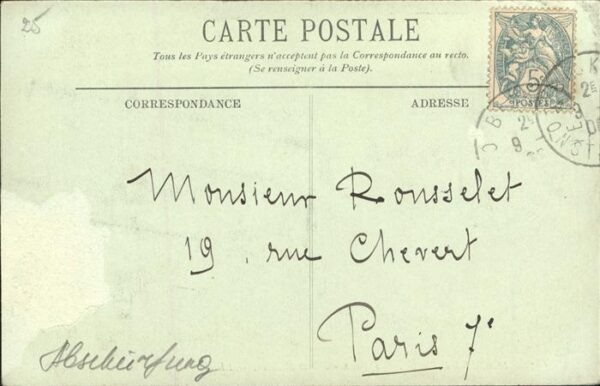 25
CARTE POSTALE
Tous les Pays étrangers n'acceptent pas la Correspondance au recto.
(Se renseigner à la Poste).
CORRESPONDANCE
ADRESSE
5
POSTES
Monsieur Rousselet
19, rue Chevert
Paris 7e
Abschürfung